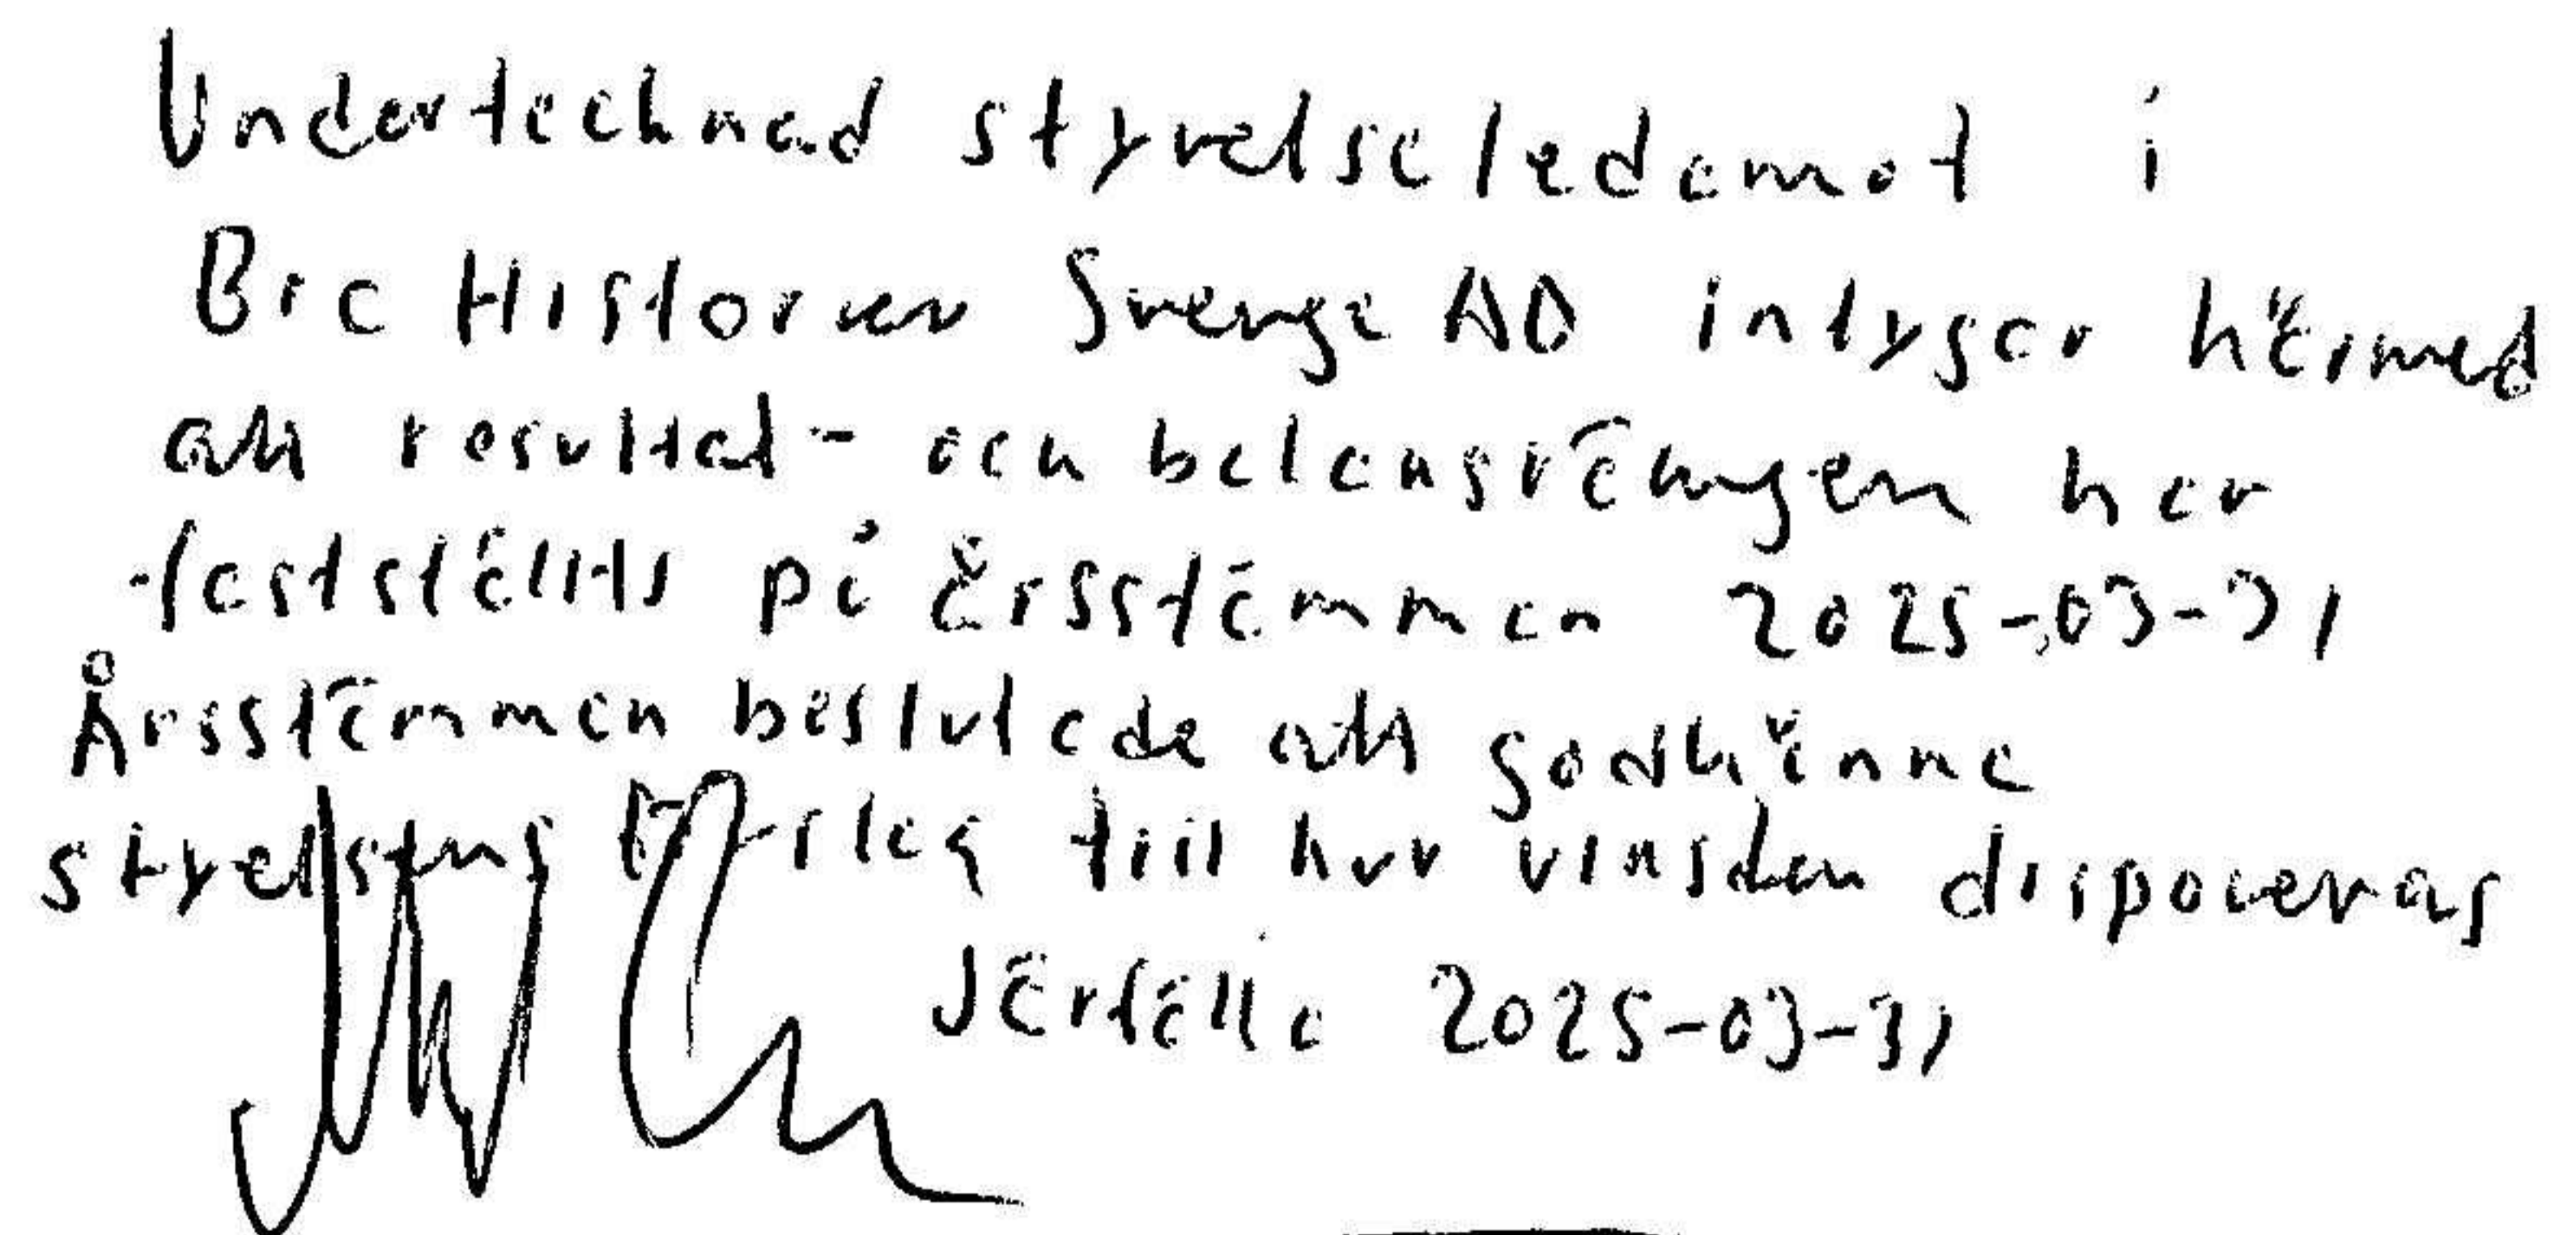 Undertecknad styrelseledamot i
Bra Historier Sverige AB intygar härmed
att resultat- och balansräkningen har
fastställts på årsstämman 2025-03-31
Årsstämman beslutade att godkänna
styrelsens förslag till hur vinsten disponeras
Järfälla 2025-03-31